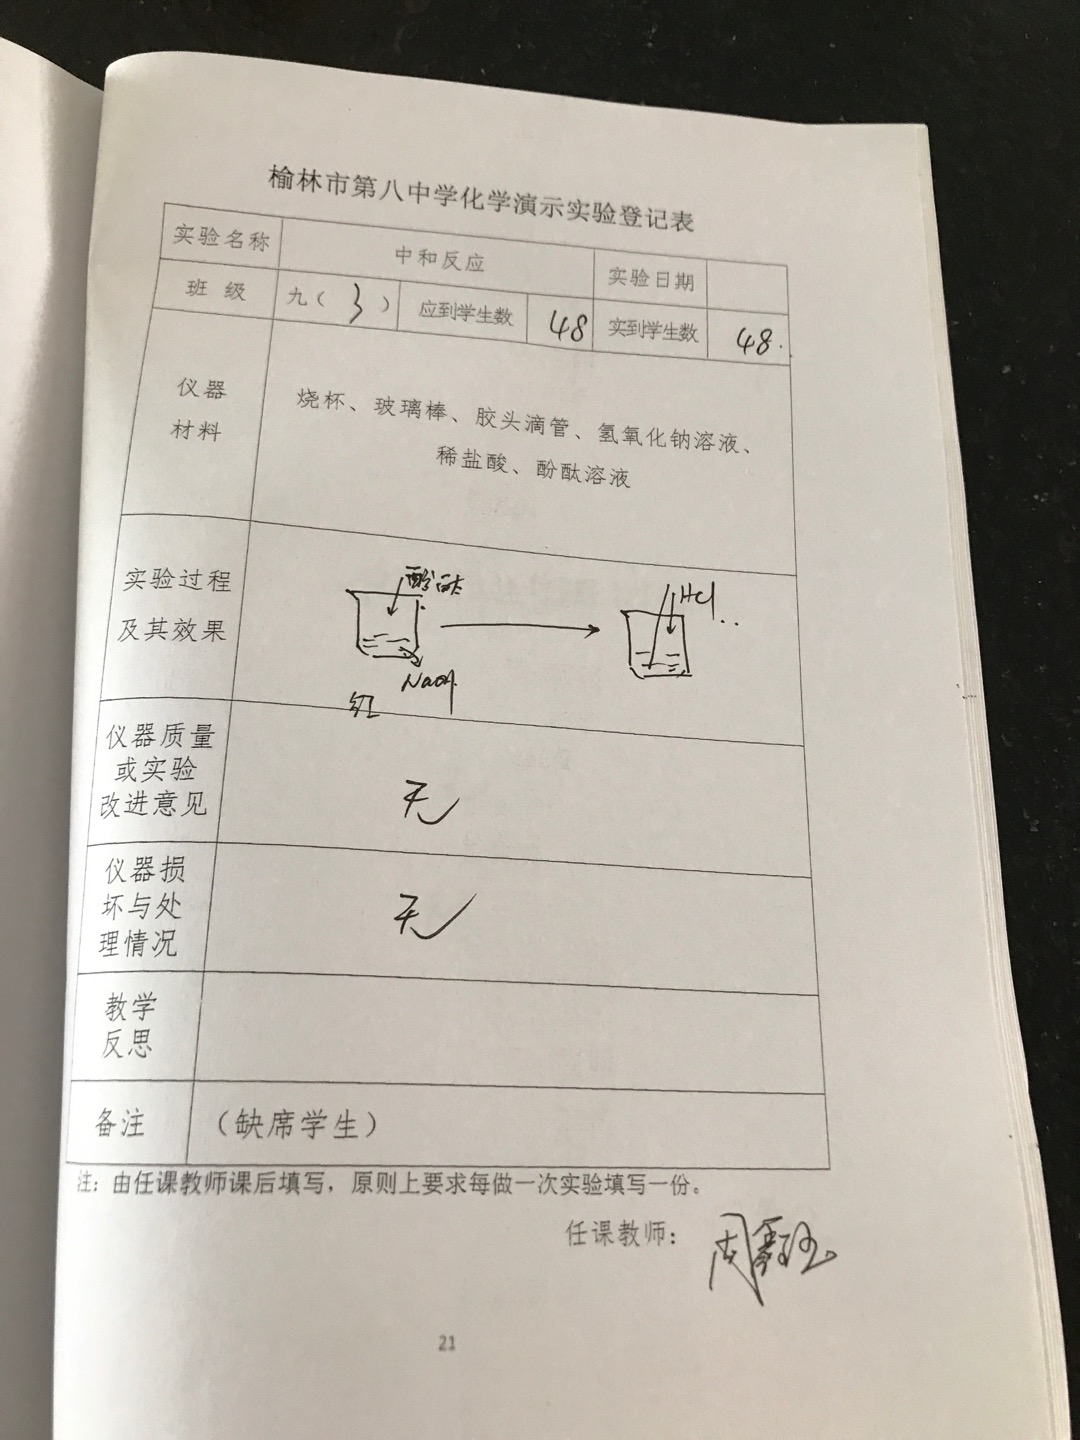 榆林市第八中学化学演示实验登记表
实验名称 中和反应 实验日期
班 级 九（ 3 ） 应到学生数 48 实到学生数 48.
仪器
材料
烧杯、玻璃棒、胶头滴管、氢氧化钠溶液、
稀盐酸、酚酞溶液
实验过程
及其效果
酚酞
NaOH
红
HCl
仪器质量
或实验
改进意见
无
仪器损
坏与处
理情况
无
教学
反思
备注 （缺席学生）
注：由任课教师课后填写，原则上要求每做一次实验填写一份。
任课教师： 周
21